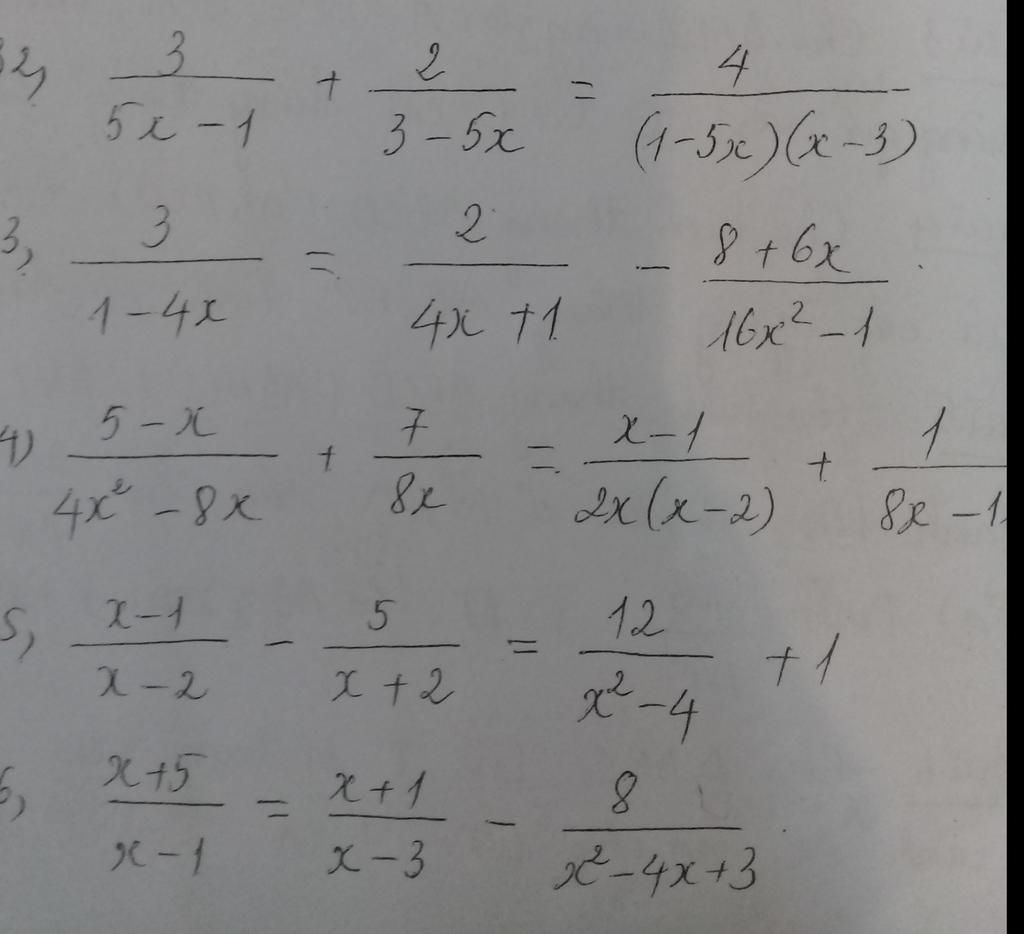 2, 3/(5x - 1) + 2/(3 - 5x) = 4/((1 - 5x)(x - 3))
3, 3/(1 - 4x) = 2/(4x + 1) - (8 + 6x)/(16x² - 1)
4) (5 - x)/(4x² - 8x) + 7/(8x) = (x - 1)/(2x(x - 2)) + 1/(8x - 1
5, (x - 1)/(x - 2) - 5/(x + 2) = 12/(x² - 4) + 1
6, (x + 5)/(x - 1) = (x + 1)/(x - 3) - 8/(x² - 4x + 3)